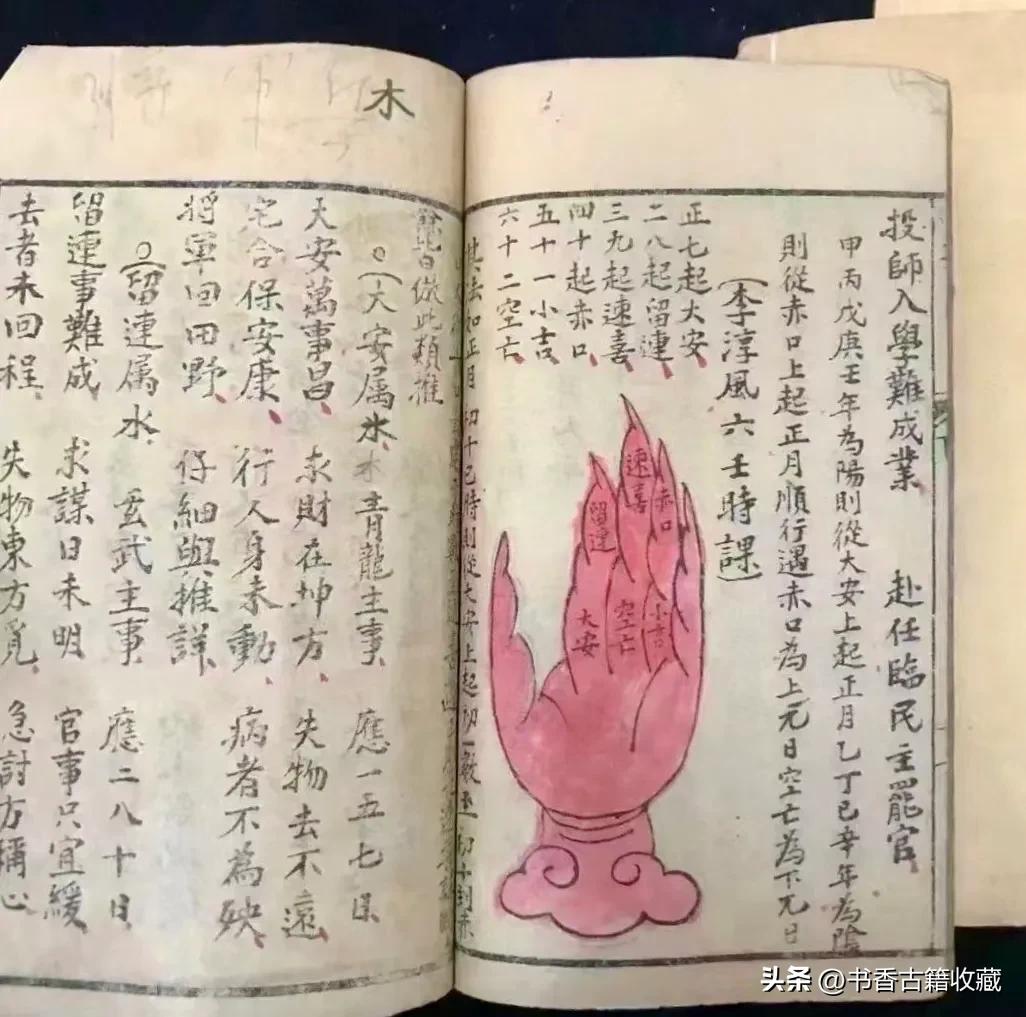 投師入學難成業 赴任臨民主罷官
甲丙戊庚壬年為陽則從大安上起正月乙丁巳辛年為陰
則從赤口上起正月順行遇赤口為上元日空亡為下元日
(李淳風六壬時課)
正七起大安
二八起留連
三九起速喜
四十起赤口
五十一小吉
六十二空亡
速喜
赤口
留連
小吉
空亡
大安
其法如正月初十巳時則從大安上起初一數至初十到赤
餘皆倣此類推
木
○(大安属水 木青龍主事 應一五七日
大安萬事昌 求財在坤方 失物去不遠
宅合保安康 行人身未動 病者不為殃
將軍回田野 仔細與推詳
○(留連属水 玄武主事 應二八十日
留連事難成 求謀日未明 官事只宜緩
去者未回程 失物東方覓 急討方稱心
头条 @书香古籍收藏